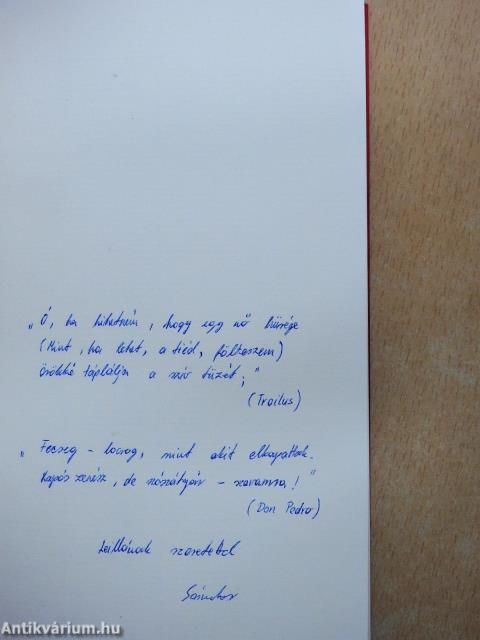 „Ó, ha hihetném, hogy egy nő hűsége
(Mint, ha lehet, a tiéd, fölteszem)
örökké táplálja a szív tüzét;"
(Troilus)
„Fecseg - locsog, mint akit elkapattak.
Kapós zenész, de szószátyár - szavamra!"
(Don Pedro)
szeretettel
Sándor
Antikvárium.hu